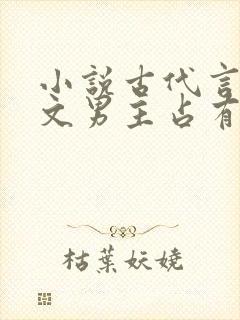 小說古代言
文男主占有
枯葉妖嬈